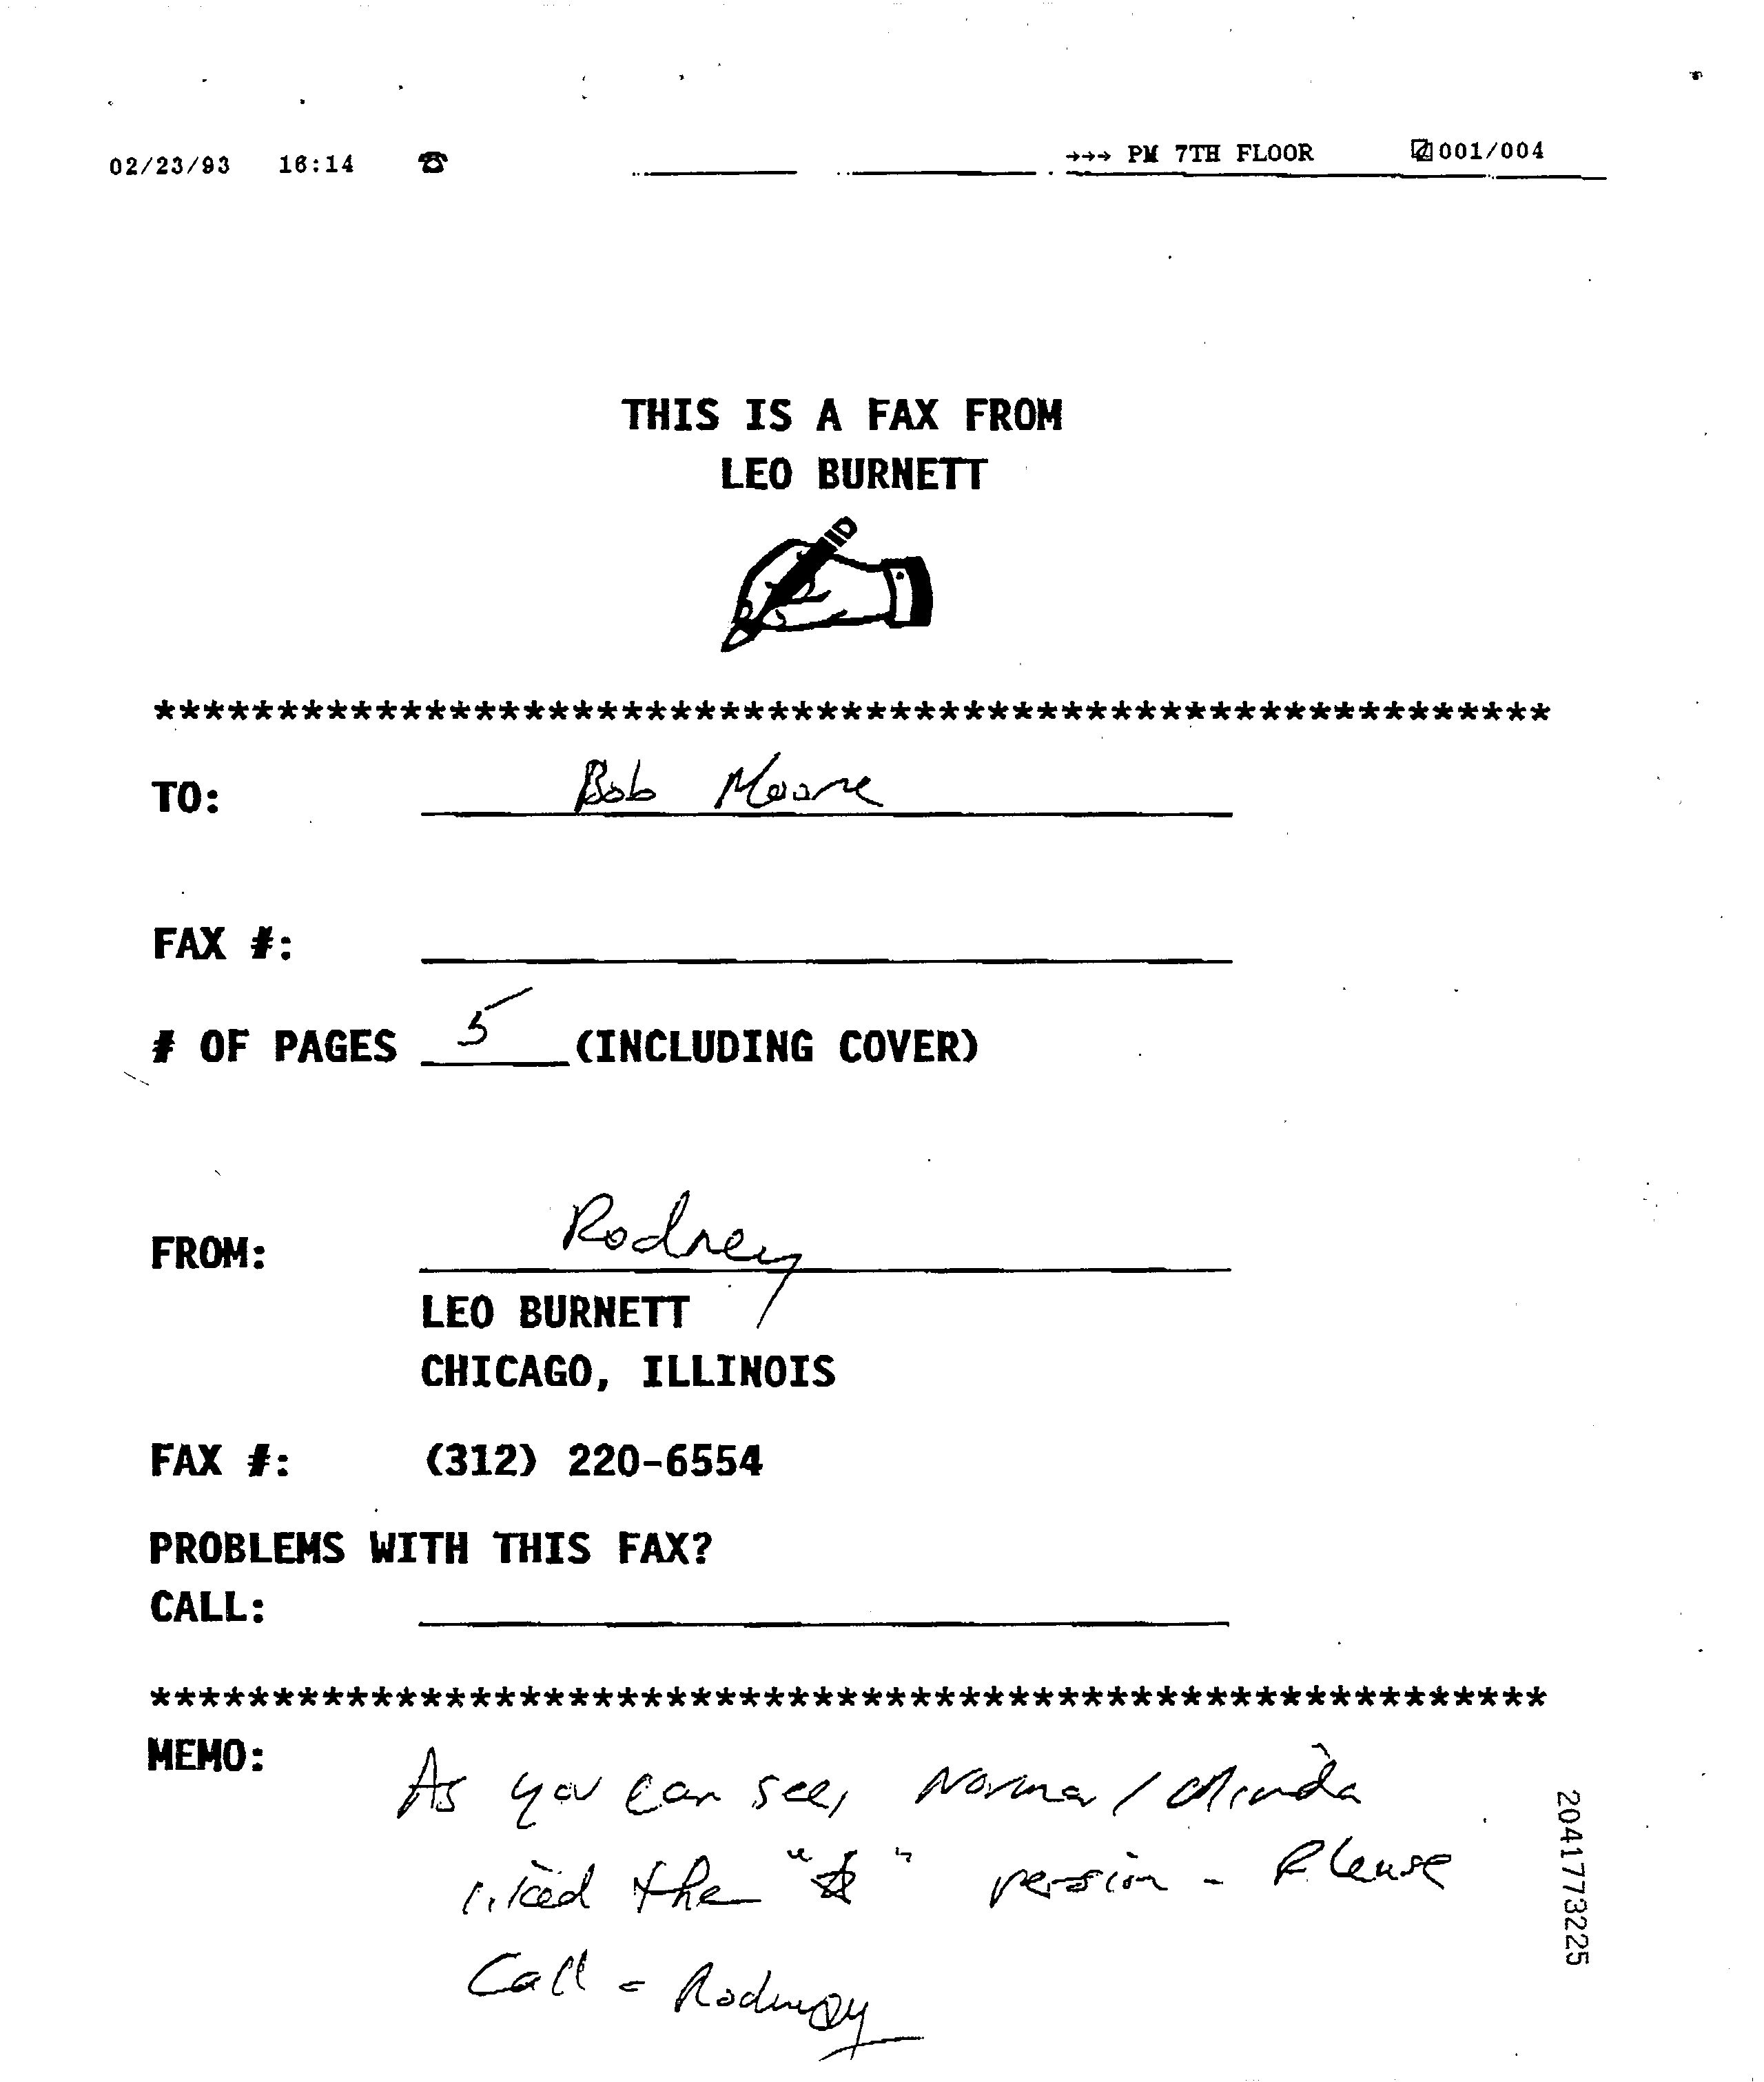 02/23/93 16:14 ☎ →→→ PM 7TH FLOOR 001/004
THIS IS A FAX FROM
LEO BURNETT
*********************************************************
TO: Bob Moore
FAX #:
# OF PAGES 5 (INCLUDING COVER)
FROM: Rodney
LEO BURNETT
CHICAGO, ILLINOIS
FAX #: (312) 220-6554
PROBLEMS WITH THIS FAX?
CALL:
*********************************************************
MEMO: As you can see, Norma / Minda
liked the " " version - Please
Call - Rodney
2041773225